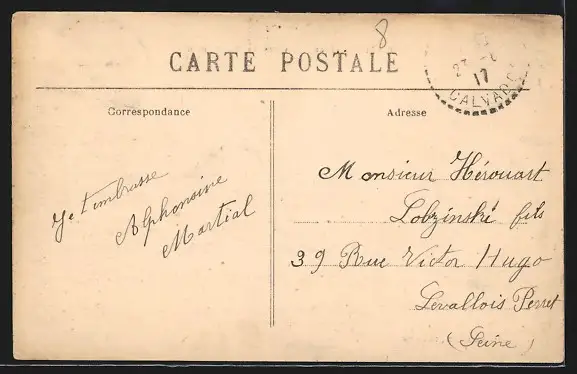 8
CARTE POSTALE
Correspondance
Adresse
17
CALVADOS
Je t'embrasse
Alphonsine
Martial
Monsieur Hérouart
Lobzinski fils
39 Rue Victor Hugo
Levallois Perret
(Seine)